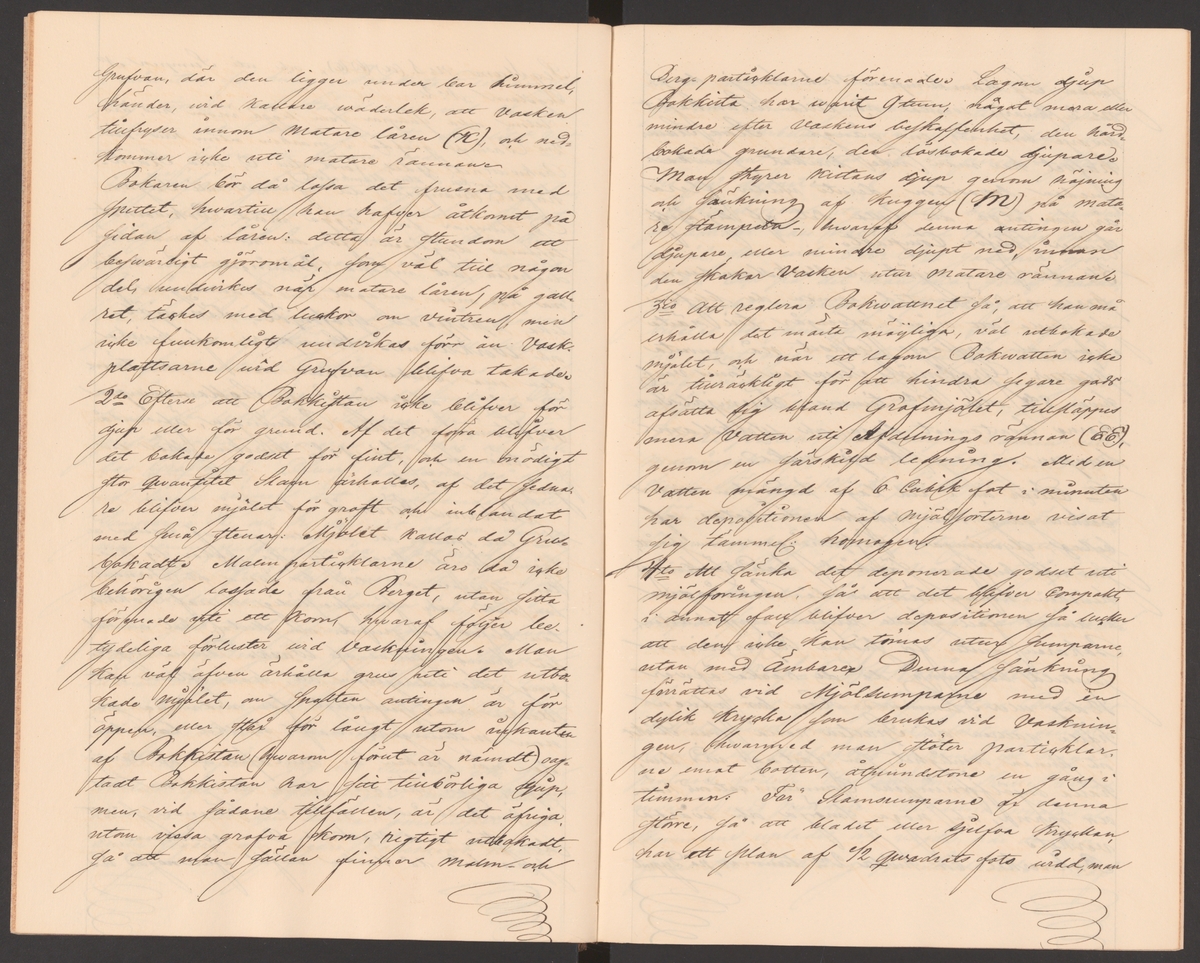 Grufvan, där den ligger under bar himmel,
händer, wid kallare wäderlek, att Vasken
tillfryser innom Matare låren (K), och ned-
kommer icke uti matare rännan.
Bokaren bör då lossa det frusna med
spettet, hwartill han hafver åtkomst på
sidan af låren: detta är stundom ett
beswärligt gjöromål, som väl till någon
del, undvikes när matare låren, på gall-
ret, täckes med luckor om vintren, men
icke fullkomligt undvikas förr än Vask-
plattsarne wid Grufvan blifva takade.
2do Efterse att Bokkistan icke blifver för
djup eller för grund. Af det förra blifver
det bokade godset för fint, och en onödigt
stor qwantitet Slam erhålles, af det sedna-
re blifver mjölet för groft och inblandat
med små stenar: Mjölet kallas då Grus-
bokadt. Malm partiklarne äro då icke
behörigen lossade från Berget, utan sitta
förenade uti ett Korn, hwaraf följer be-
tydeliga förluster wid Vaskningen. Man
kan väl äfven erhålla grus uti det utbo-
kade Mjölet, om spalten antingen är för
öppen, eller står för långt utom utkanten
af Bokkistan (hwarom förut är nämdt) oag-
tadt Bokkistan har sitt tillbörliga djup,
men, vid sådane tillfällen, är det öfriga,
utom vissa grofva Korn, rigtigt utbokadt,
så att man sällan finner Malm- och
Berg-partiklarne förenade. Lagom djup
Bokkista har warit 9 tum, något mera eller
mindre efter Vaskens beskaffenhet, den hård-
bokade grundare, den lösbokade djupare.
Man styrer Kistans djup genom höjning
och sänkning af Kuggen (M) på mata-
re stämpeln, hwaraf denna antingen går
djupare eller mindre djupt ned, innan
den skakar Vasken utur Matare rännan.
3tio Att reglera Bokwattnet så, att han må
erhålla det mästa möjliga, väl utbokade
mjölet, och när ett lagom Bokwatten icke
är tillräckligt för att hindra segare gods
afsätta sig ibland Grofmjölet, tillsläppes
mera Vatten uti Afdelnings rännan (EE),
genom en särskild ledning. Med en
Vatten mängd af 6 Cubik fot i minuten
har depositionen af mjölsorterne visat
sig tämmel: homogen.
4to Att sänka det deponerade godset uti
mjölföringen, så att det blifver Compakt,
i annat fall blifver depositionen så lucker
att den icke kan tömas utur Sumparne,
utan med Ämbare. Denna sänkning
förrättas vid Mjölsumparne med en
dylik Krycka som brukas vid Vasknin-
gen, hwarmed man stöter partiklar-
ne emot botten, åtminstone en gång i
timmen. För Slamsumparne är denna
större, så att bladet eller sjelfva Kryckan,
har ett plan af 1/2 qwadrats fots widd, man